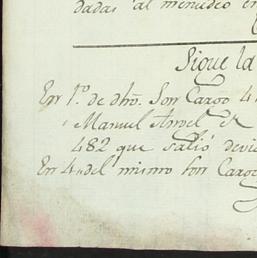 dadas al menudeo en
Sigue la
En 1º. de dho. Son Cargo 4
Manuel Angel
482 que salió devie
En 4,, del mismo son Cargo